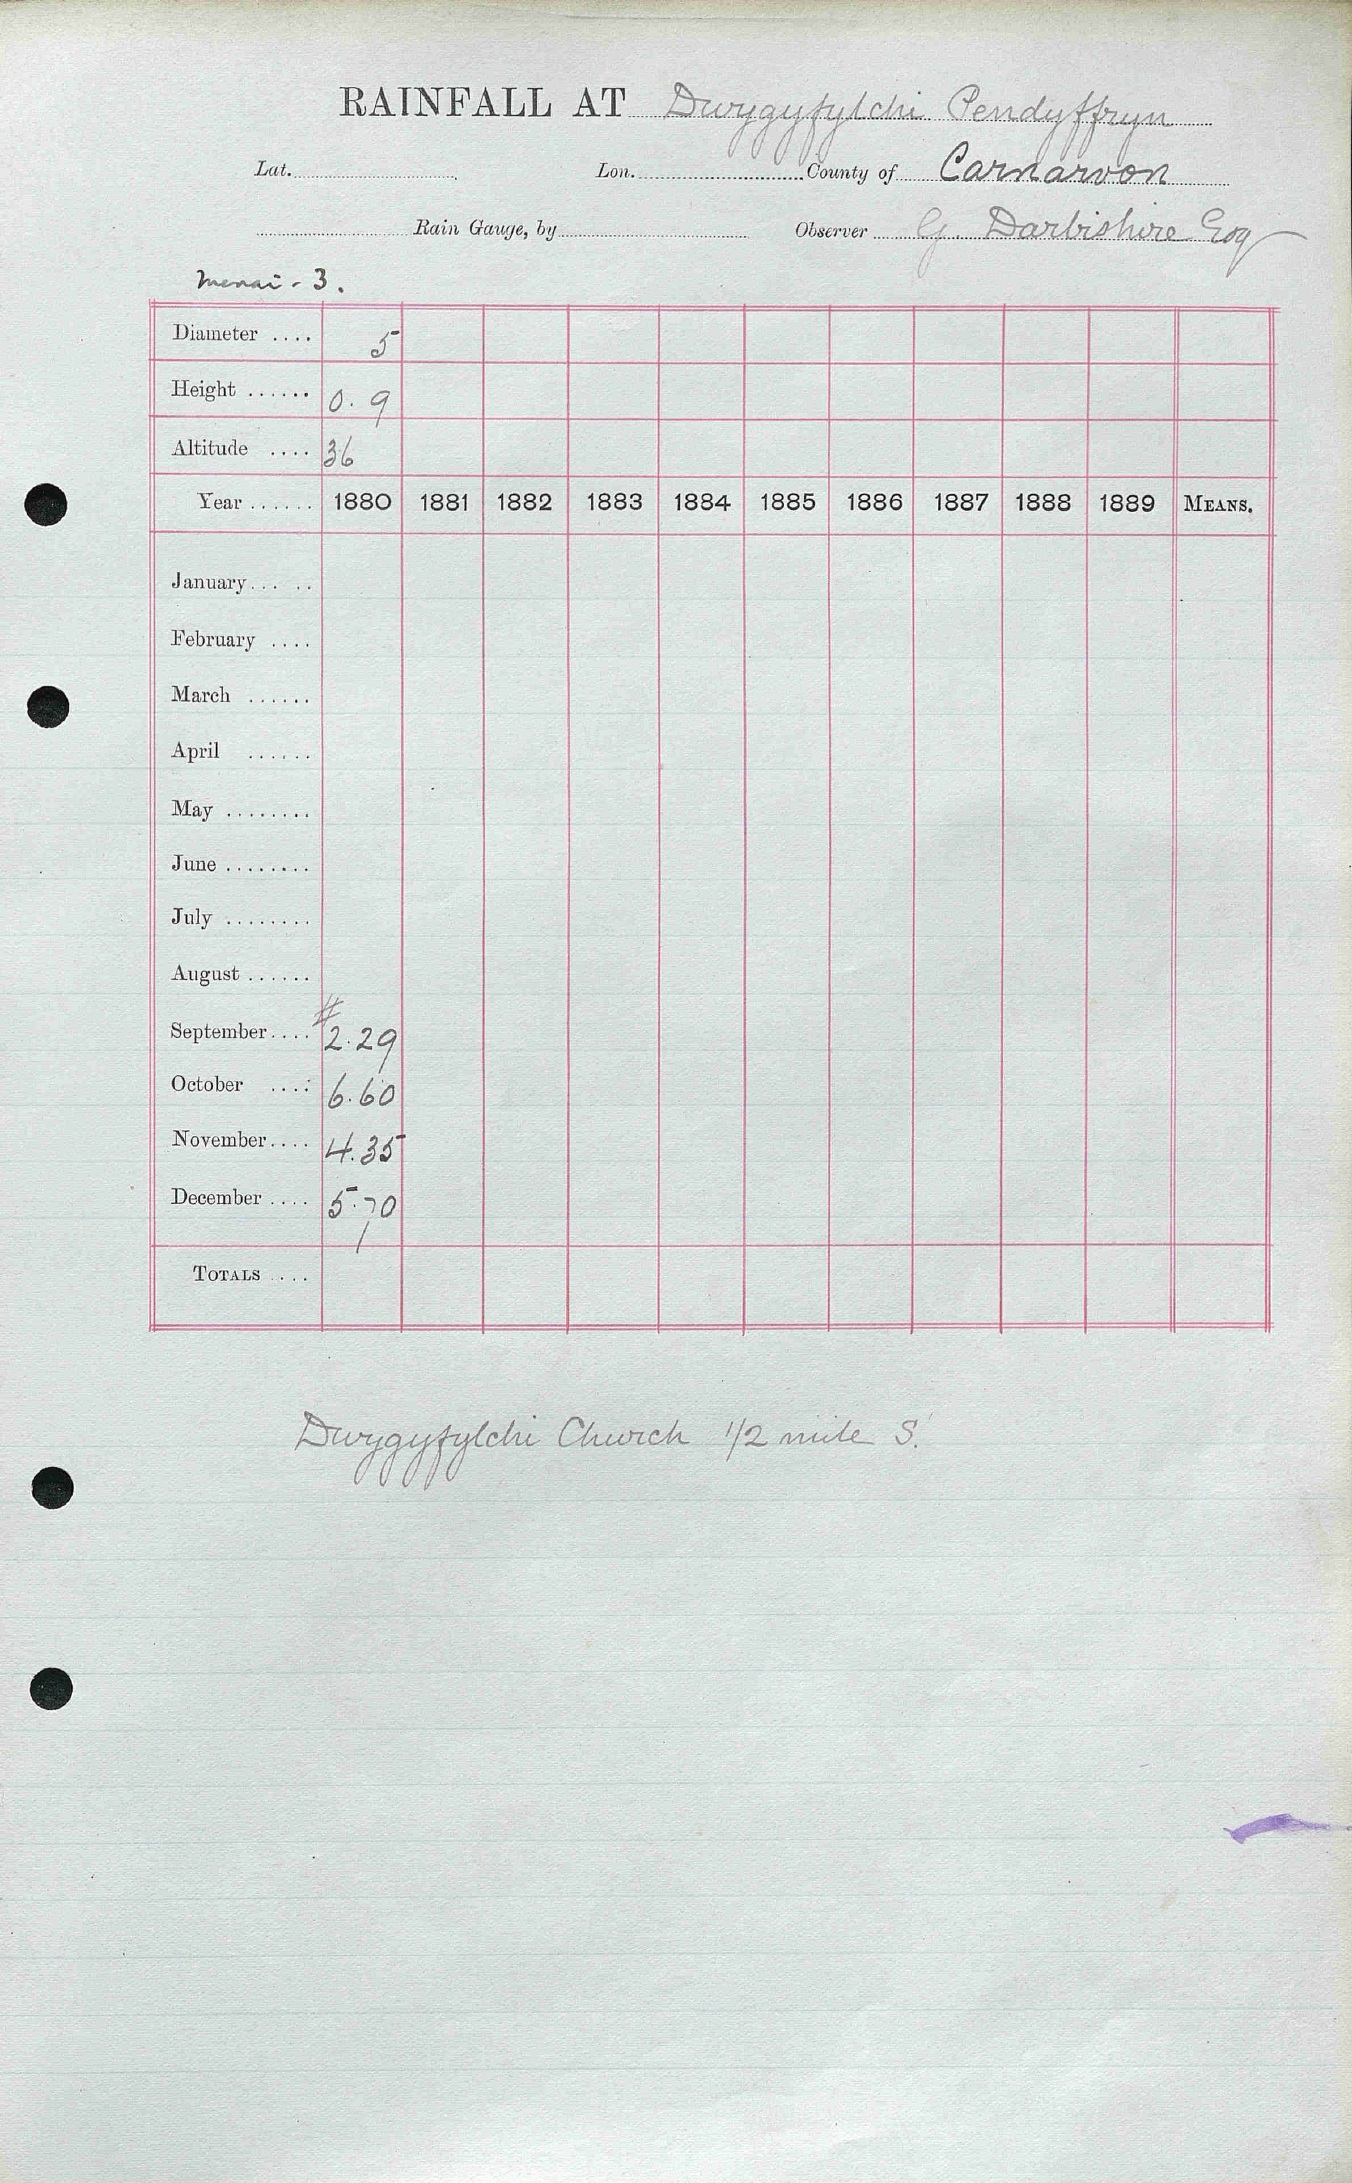 RAINFALL AT Dwygyfylchi Pendyffryn
Lat. Lon. County of Carnarvon
Rain Gauge, by Observer G. Darbishire Esq
Menai - 3.
Diameter .... 5
Height ...... 0. 9
Altitude .... 36
Year ...... 1880 1881 1882 1883 1884 1885 1886 1887 1888 1889 MEANS.
January... ..
February ....
March ......
April ......
May ........
June ........
July ........
August ......
September.... # 2.29
October .... 6.60
November.... 4.35
December .... 5.70
TOTALS ....
Dwygyfylchi Church 1/2 mile S.